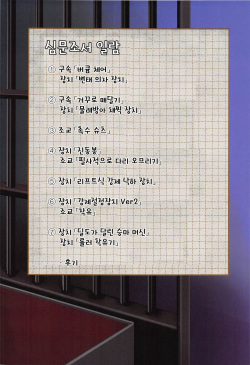 심문조서 일람
① 구속「버큠 체어」
장치「변태 의자 장치」
② 구속「거꾸로 매달기」
장치「물레방아 채찍 장치」
③ 조교「촉수 슈츠」
④ 장치「진동봉」
조교「필사적으로 다리 오므리기」
⑤ 장치「리프트식 강제 낙하 장치」
⑥ 장치「강제절정장치 Ver2」
조교「착유」
⑦ 장치「딜도가 달린 승마 머신」
장치「롤러 착유기」
후기